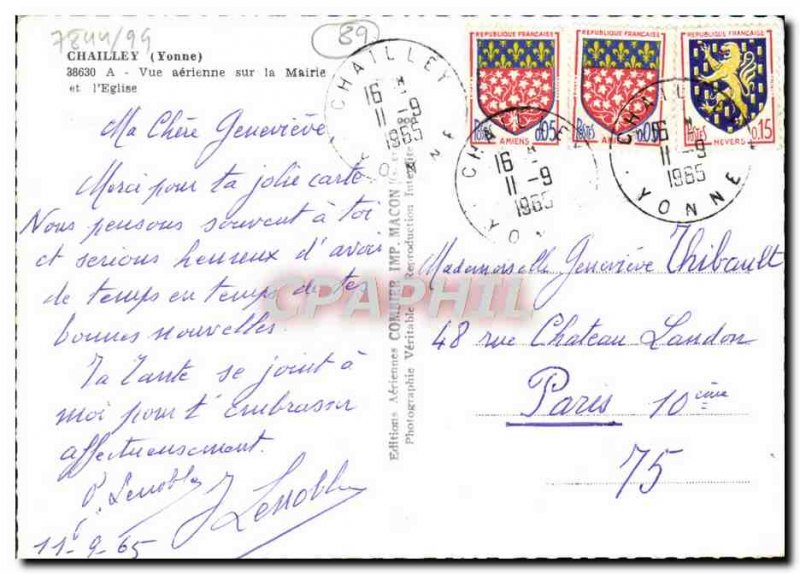 7844/99
89
CHAILLEY (Yonne)
38630 A - Vue aérienne sur la Mairie
et l'Eglise
Ma Chère Geneviève
Merci pour ta jolie carte
Nous pensons souvent à toi
et serions heureux d'avoir
de temps en temps de tes
bonnes nouvelles.
Ta Tante se joint à
moi pour t'embrasser
affectueusement.
P. Lenoble
J Lenoble
11-9-65
Editions Aériennes COMBIER IMP. MACON
Photographie Véritable Reproduction Interdite
CPAPHIL
REPUBLIQUE FRANÇAISE
Postes 0,05
AMIENS
REPUBLIQUE FRANÇAISE
Postes 0,05
AMIENS
REPUBLIQUE FRANÇAISE
Postes 0,15
NEVERS
CHAILLEY
16 H
11-9
1965
YONNE
CHAILLEY
16 H
11-9
1965
YONNE
CHAILLEY
16 H
11-9
1965
YONNE
Mademoiselle Geneviève Thibault
48 rue Chateau Landon
Paris 10ème
75